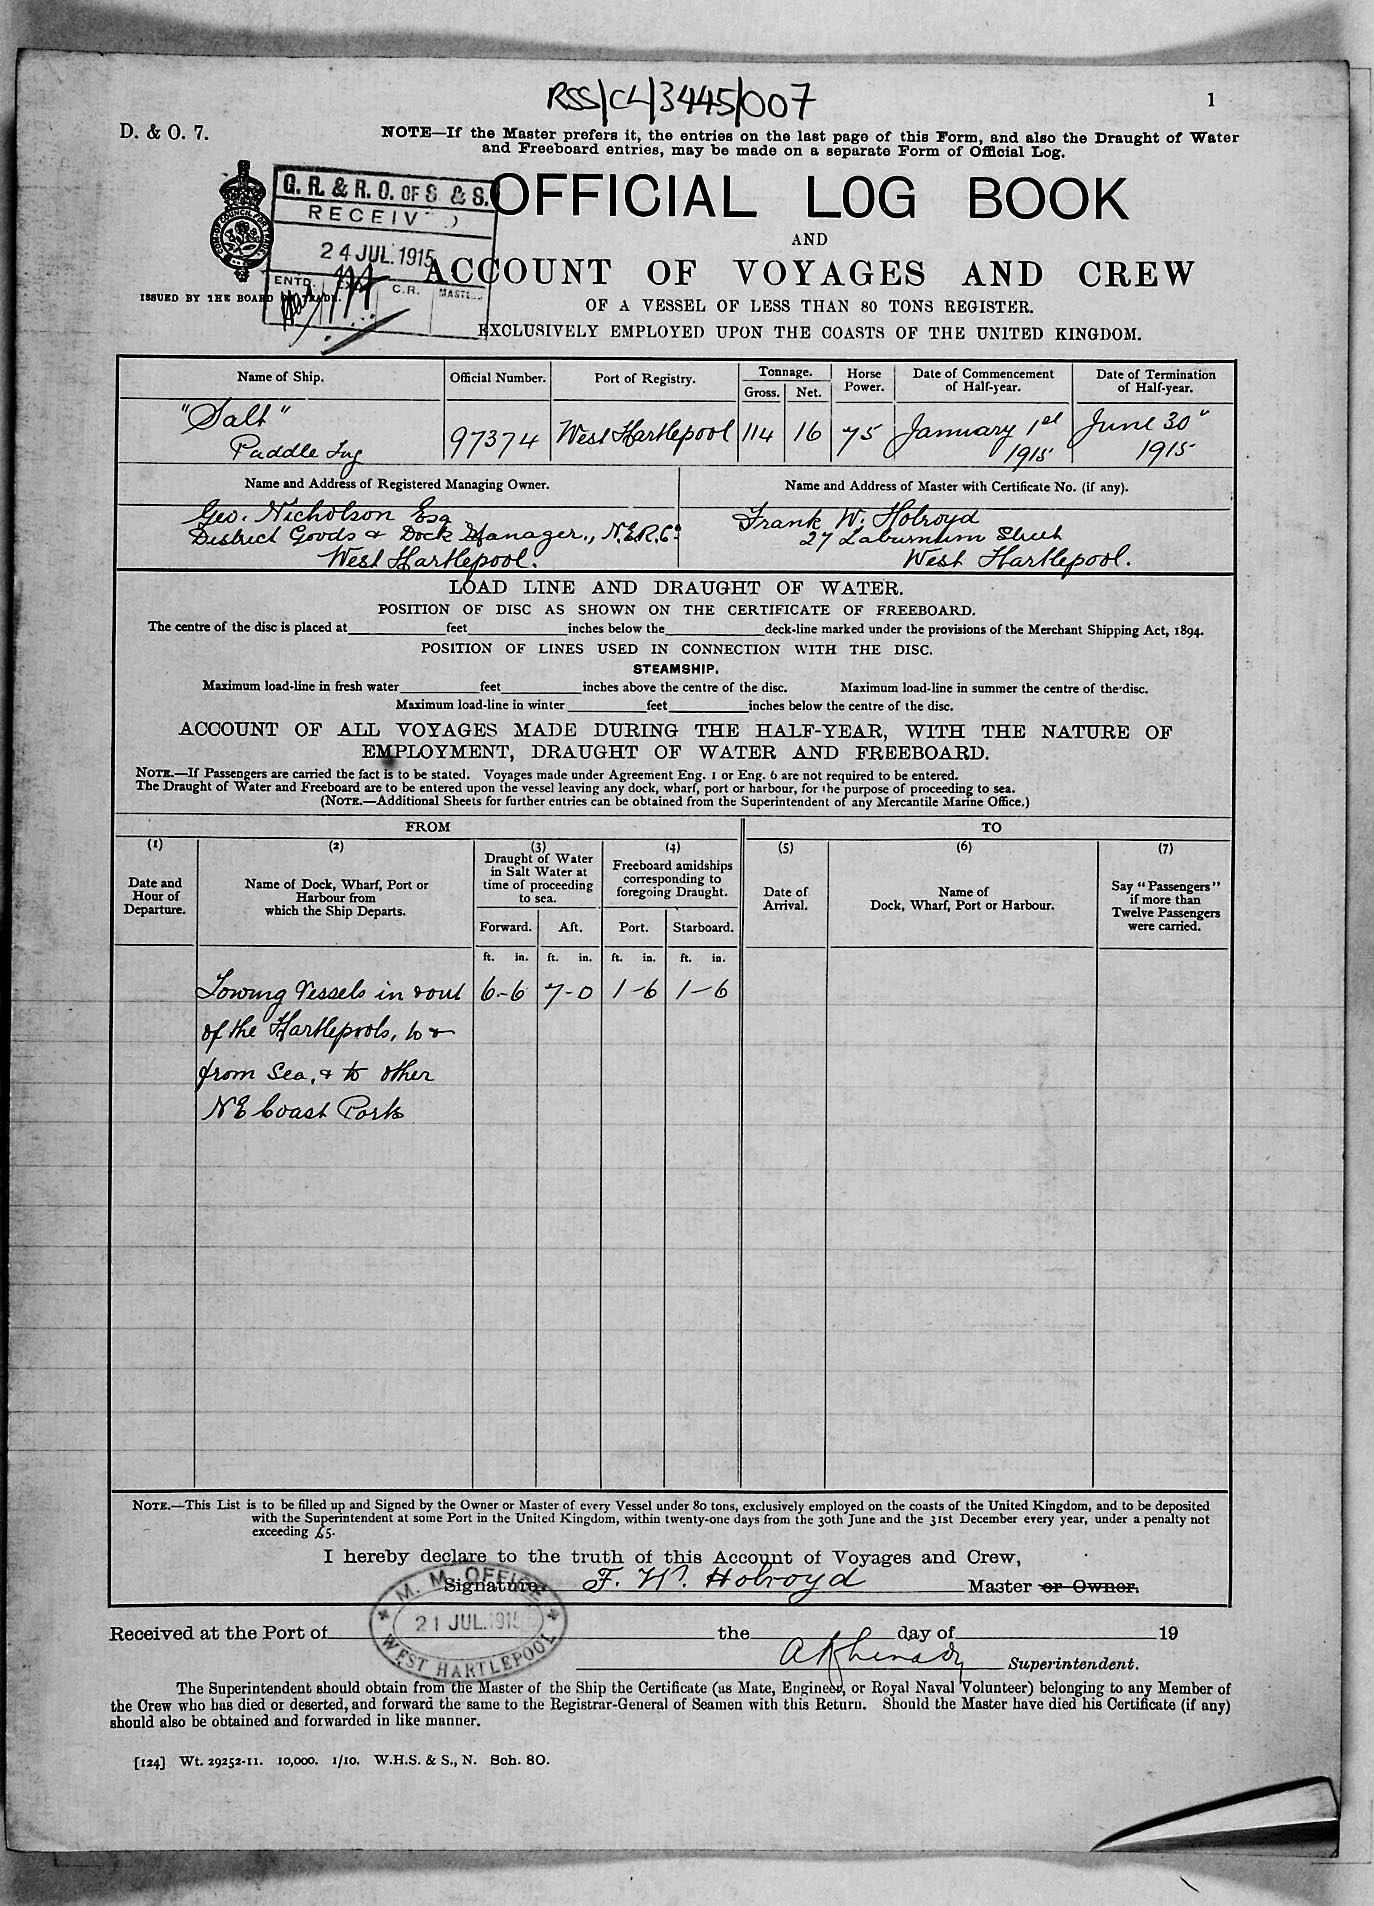 RSS/CL/3445/007
1
D. & O. 7.
NOTE—If the Master prefers it, the entries on the last page of this Form, and also the Draught of Water
and Freeboard entries, may be made on a separate Form of Official Log.
G. R. & R. O. OF S & S.
RECEIV D
24 JUL. 1915
ENTD.
C.R.
OFFICIAL LOG BOOK
AND
ACCOUNT OF VOYAGES AND CREW
ISSUED BY THE BOARD OF TRADE.
OF A VESSEL OF LESS THAN 80 TONS REGISTER.
EXCLUSIVELY EMPLOYED UPON THE COASTS OF THE UNITED KINGDOM.
Name of Ship. Official Number. Port of Registry. Tonnage. Gross. Net. Horse Power. Date of Commencement of Half-year. Date of Termination of Half-year.
"Salt" 97374 West Hartlepool 114 16 75 January 1st June 30"
Paddle Tug 1915 1915
Name and Address of Registered Managing Owner. Name and Address of Master with Certificate No. (if any).
Geo. Nicholson Esq Frank W. Holroyd
District Goods & Dock Manager., N.E.R. Co. 27 Laburnum Street
West Hartlepool. West Hartlepool.
LOAD LINE AND DRAUGHT OF WATER.
POSITION OF DISC AS SHOWN ON THE CERTIFICATE OF FREEBOARD.
The centre of the disc is placed at feet inches below the deck-line marked under the provisions of the Merchant Shipping Act, 1894.
POSITION OF LINES USED IN CONNECTION WITH THE DISC.
STEAMSHIP.
Maximum load-line in fresh water feet inches above the centre of the disc. Maximum load-line in summer the centre of the disc.
Maximum load-line in winter feet inches below the centre of the disc.
ACCOUNT OF ALL VOYAGES MADE DURING THE HALF-YEAR, WITH THE NATURE OF
EMPLOYMENT, DRAUGHT OF WATER AND FREEBOARD.
NOTE.—If Passengers are carried the fact is to be stated. Voyages made under Agreement Eng. 1 or Eng. 6 are not required to be entered.
The Draught of Water and Freeboard are to be entered upon the vessel leaving any dock, wharf, port or harbour, for the purpose of proceeding to sea.
(NOTE.—Additional Sheets for further entries can be obtained from the Superintendent of any Mercantile Marine Office.)
FROM TO
(1) (2) (3) (4) (5) (6) (7)
Date and Hour of Departure.
Name of Dock, Wharf, Port or Harbour from which the Ship Departs.
Draught of Water in Salt Water at time of proceeding to sea.
Freeboard amidships corresponding to foregoing Draught.
Date of Arrival.
Name of Dock, Wharf, Port or Harbour.
Say "Passengers" if more than Twelve Passengers were carried.
Forward. Aft. Port. Starboard.
ft. in. ft. in. ft. in. ft. in.
Towing Vessels in & out 6-6 7-0 1-6 1-6
of the Hartlepools, to &
from Sea, & to other
NE Coast Ports
NOTE.—This List is to be filled up and Signed by the Owner or Master of every Vessel under 80 tons, exclusively employed on the coasts of the United Kingdom, and to be deposited
with the Superintendent at some Port in the United Kingdom, within twenty-one days from the 30th June and the 31st December every year, under a penalty not
exceeding £5.
I hereby declare to the truth of this Account of Voyages and Crew,
Signature F. W. Holroyd Master or Owner.
M. M. OFFICE
21 JUL. 1915
WEST HARTLEPOOL
Received at the Port of the day of 19
Superintendent.
The Superintendent should obtain from the Master of the Ship the Certificate (as Mate, Engineer, or Royal Naval Volunteer) belonging to any Member of
the Crew who has died or deserted, and forward the same to the Registrar-General of Seamen with this Return. Should the Master have died his Certificate (if any)
should also be obtained and forwarded in like manner.
[124] Wt. 29252-11. 10,000. 1/10. W.H.S. & S., N. Sch. 80.